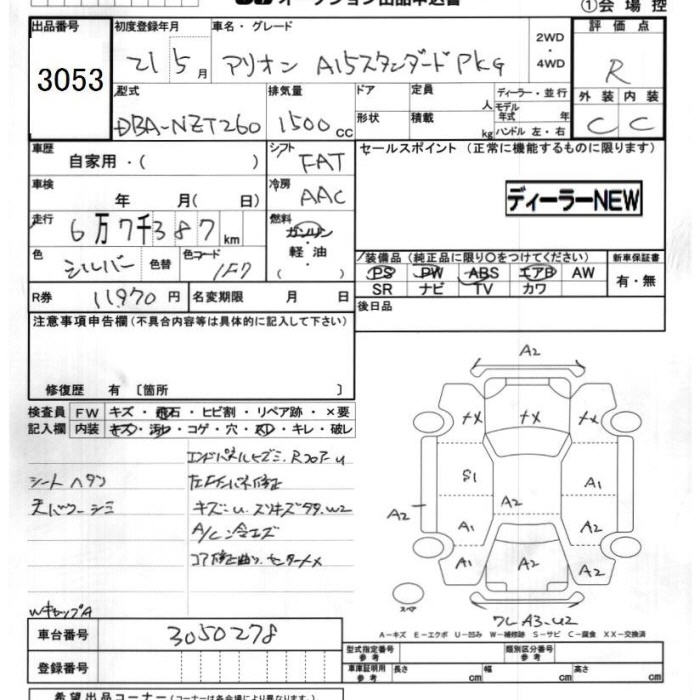 オークション出品申込書
①会場控
出品番号 初度登録年月 車名・グレード 2WD・4WD 評価点
3053 21 5月 アリオン A15スタンダードPKG R
型式 排気量 ドア 定員 人 ディーラー・並行 外装 内装
DBA-NZT260 1500cc 形状 積載 kg モデル年式 年式 ハンドル 左・右 C C
車歴 自家用・( ) シフト FAT セールスポイント (正常に機能するものに限ります)
車検 年 月( 日) 冷房 AAC ディーラーNEW
走行 6万7千387km 燃料 ガソリン
軽・油
( )
色 シルバー 色替 色コード 1F7
装備品 (純正品に限り○をつけてください) 新車保証書
PS PW ABS エアB AW 有・無
SR ナビ TV カワ
R券 11970円 名変期限 月 日 後日品
注意事項申告欄 (不具合内容等は具体的に記入して下さい)
修復歴 有 〔箇所 〕
検査員 FW キズ・飛石・ヒビ割・リペア跡・×要
記入欄 内装 キズ・汚れ・コゲ・穴・スレ・キレ・破レ
シート ヘタリ
天バリ シミ
キズ・U. スリキズ W2
WキャップA
A2
S1
A2
A1
A2
A1
A1
A1
A2
A2
スペア
A-キズ E-エクボ U-凹み W-補修跡 S-サビ C-腐食 XX-交換済
車台番号 3050278
登録番号
型式指定番号 参考 類別区分番号 参考
車庫証明用 参考 長さ cm 幅 cm 高さ cm
希望出品コーナー (コーナーは各会場により異なります)